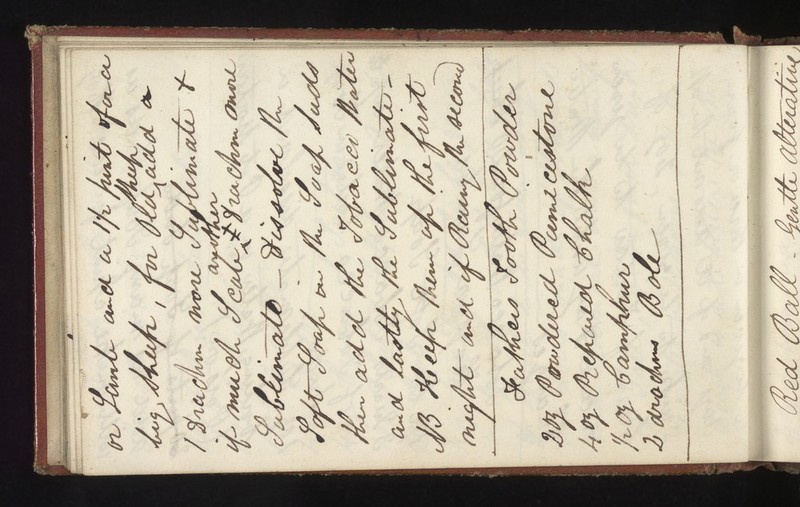 or Lamb and a 1/2 pint for a
big sheep, for Old sheep add a
1 Drachm more Sublimate &
if much Scab another Drachm more
Sublimate — Dissolve the
Soft Soap in the Soap Suds
then add the Tobacco Water
and lastly the Sublimate —
NB Keep them up the first
night and if Rainy the second
Fathers Tooth Powder
2 oz Powdered Pumicestone
4 oz Prepared Chalk
1/2 oz Camphour
2 drachms Bole
Red Ball - Gentle Alterative